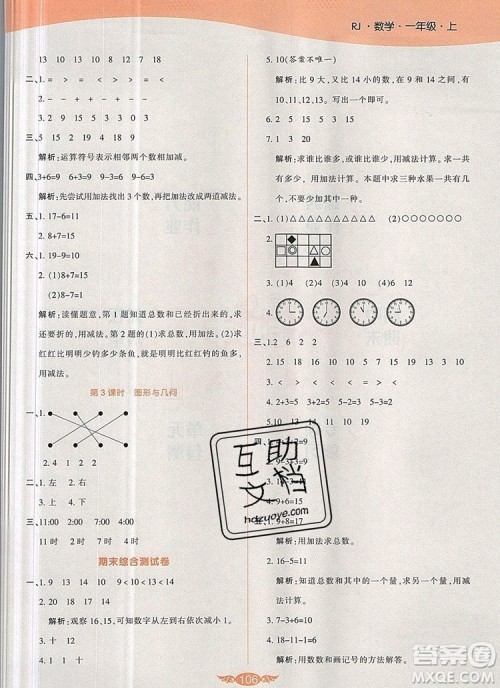 RJ·数学·一年级·上
5 10 13 15 18 19 20
二、1. > = < > < =
2. + - + - + -
三、5 15 19 18 4 9
解析:运算符号表示相邻两个数相加减。
四、3+6=9 6+3=9 9-3=6 9-6=3
解析:先尝试用加法找出3个数,再把加法改成两道减法。
五、1. 17-6=11
2. 8+7=15
六、1. 19-9=10
2. (1)8+7=15
(2)8-7=1
解析:读懂题意,第1题知道总数和已经折出来的,求
还要折的,用减法。第2题(1)求总数,用加法;(2)求
红红比明明少钓多少条鱼,就是求明明比红红钓的
多多少条,用减法计算。
第3课时 图形与几何
一、1.
2. 4 1 2 1
二、1. 左 右
2. 右 左
3. 上 下
三、11:00 2:00 7:00 12:00
11时 2时 7时 12时
期末综合测试卷
一、1. 9 10 13 14 19 20
2. 18 17 14 13
解析:观察16,15,可知数字从左往右依次少1。
3. 十 十
4. 1 1 13
5. 10(答案不唯一)
解析:比9大,又比14小的数,在9和14之间,有
10,11,12,13。写出一个即可。
6. 2 5 15
7. 1 3 20
解析:求谁比谁多,求谁比谁少,用减法计算。求谁
比谁多几,用减法计算。本题中求三种水果的具体
关系,求出其中一种。
二、1. △△△△△△△△ ○○○○○○○○
2.
3. (1)4 (2)4 (3)2 (4)6 12
4.
三、1. > < > > = <
2. 15 18 10 19 13 14
3. 2+3=5 2+4=6 2+5=7
4+5=9
四、
2. 9-3-3=3
五、1. 9+8=17
解析:用加法求总数。
2. 16-5=11
解析:知道总数和其中一个量,求另一个量,用减法
计算。
3. 10-2+7=15
4. 18-11-1=6
解析:用数数和画记号的方法解答。
互助文档
hdzuoye.com
106
答案圈